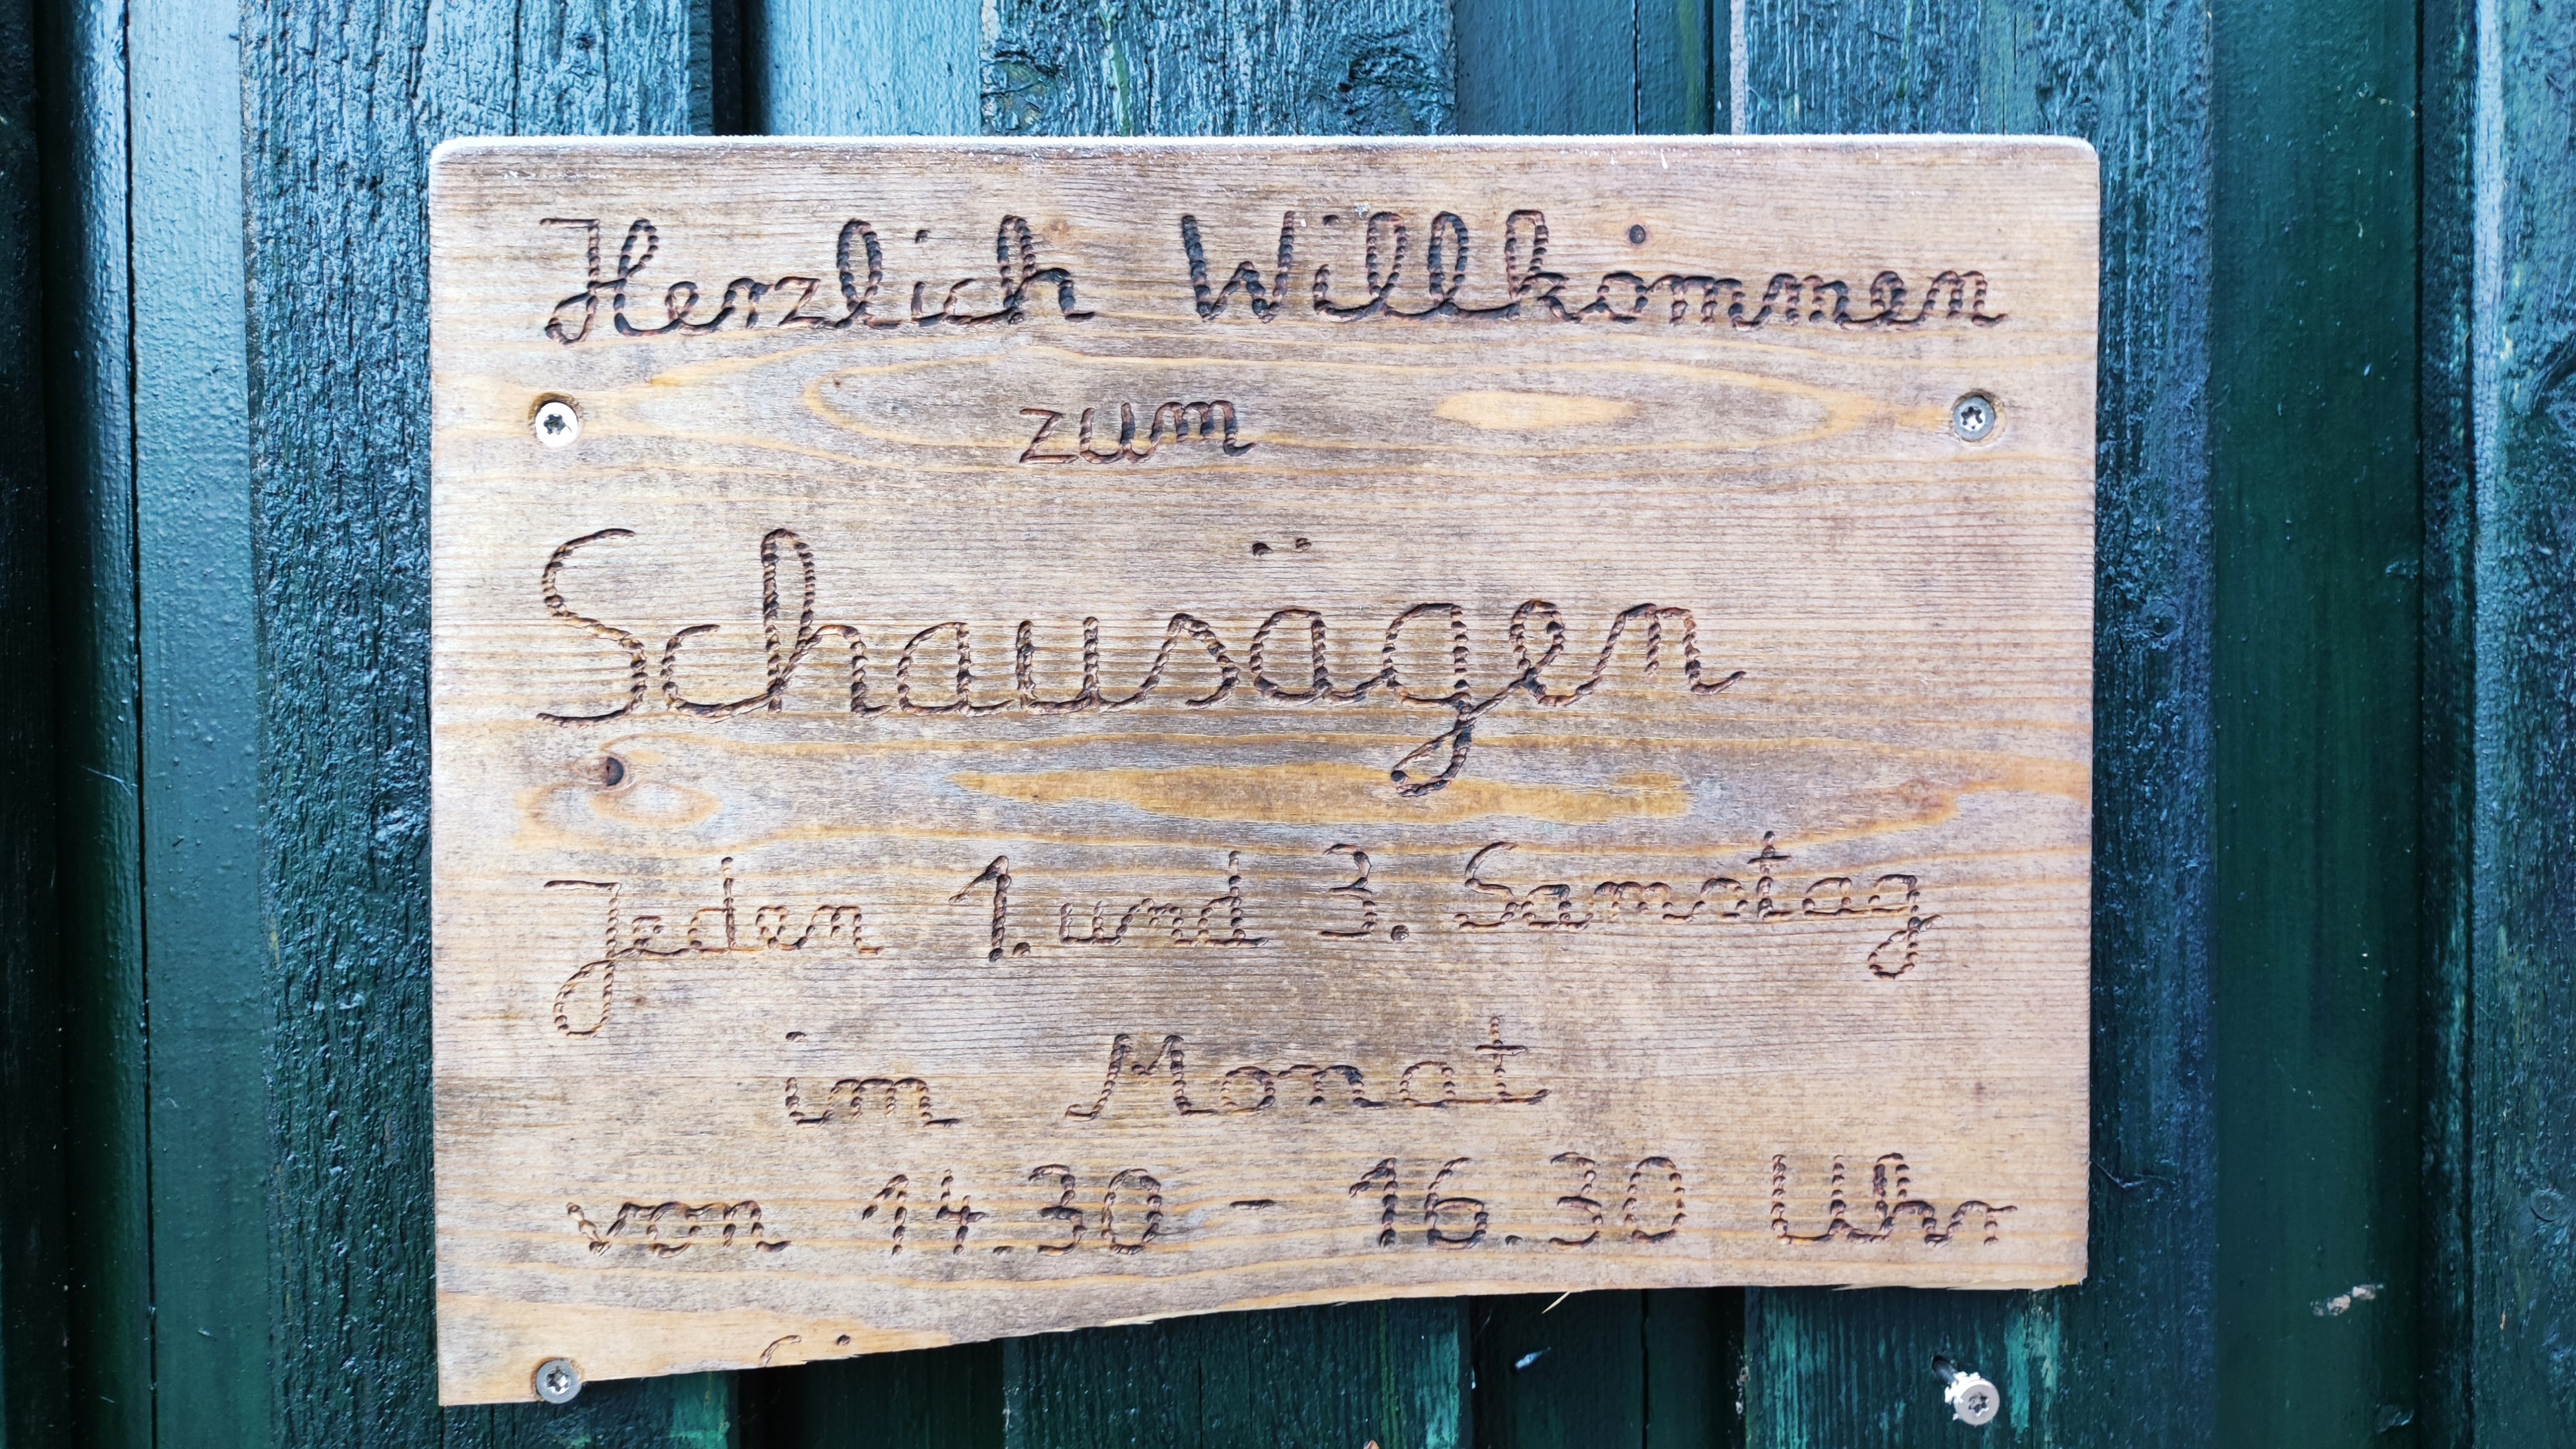 Herzlich Willkommen
zum
Schausägen
Jeden 1. und 3. Samstag
im Monat
von 14.30 - 16.30 Uhr